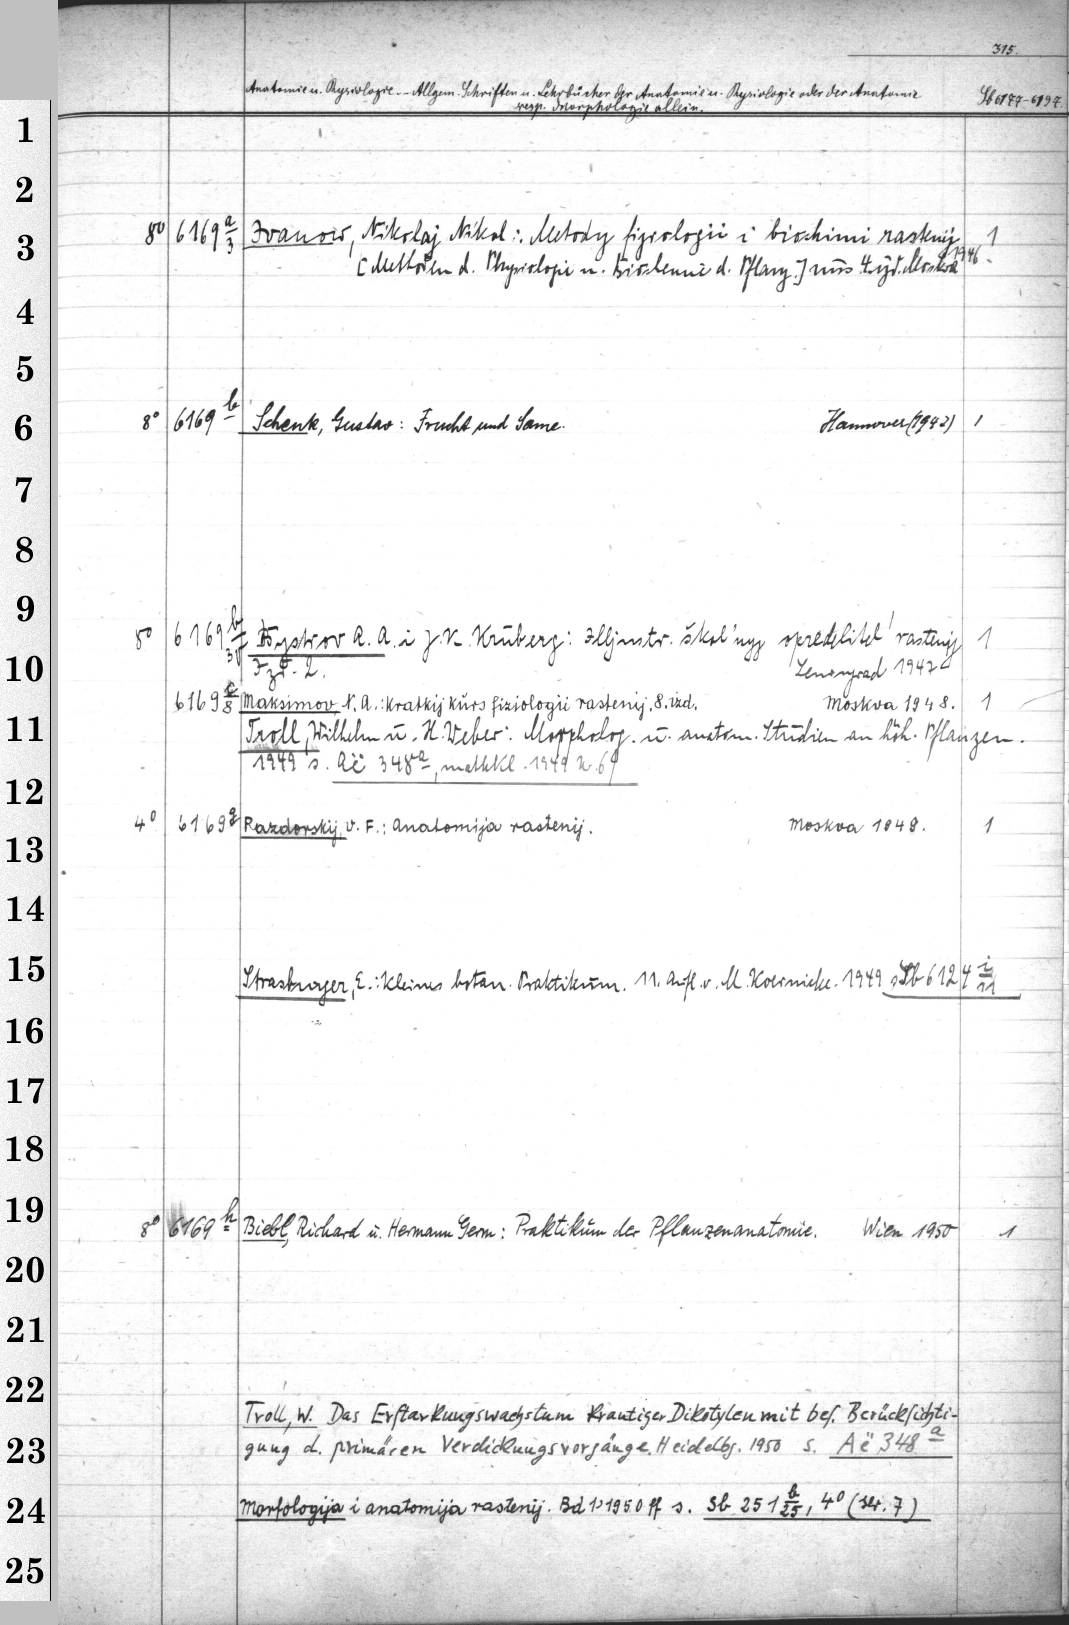 315.
Anatomie u. Physiologie. - Allgem. Schriften u. Lehrbücher der Anatomie u. Physiologie oder der Anatomie Sb 6177-6197.
resp. Morphologie allein.
1
2
3
8° 6169 a/3 Ivanow, Nikolaj Nikol.: Metody fiziologii i biochimi rastenij 1
[Methoden d. Physiologie u. Biochemie d. Pflanz.] Moskva 1946.
4
5
6
8° 6169 b Schenk, Gustav: Frucht und Same. Hannover (1942) 1
7
8
9
8° 6169 b/30 Bystrov A. A. i J. K. Kruberg: Illjustr. škol'nyj opredelitel' rastenij 1
Izd. 2. Leningrad 1942
10
6169 c/8 Maksimov N. A.: Kratkij kurs fiziologii rastenij, 8. izd. Moskva 1948. 1
11
Troll, Wilhelm u. H. Weber: Morpholog. u. anatom. Studien an höh. Pflanzen.
1949 s. Aë 348 a, 1949 N. 69
12
4° 6169 g Razdorskij, V. F.: Anatomija rastenij. Moskva 1949. 1
13
14
15
Strasburger, E.: Kleines botan. Praktikum. 11. Aufl. v. M. Koernicke. 1949 s. Sb 6124 i/11
16
17
18
19
8° 6169 h Biebl, Richard u. Hermann Germ: Praktikum der Pflanzenanatomie. Wien 1950 1
20
21
22
Troll, W. Das Erstarkungswachstum krautiger Dikotylen mit bes. Berücksichti-
23
gung d. primären Verdickungsvorgänge. Heidelbg. 1950 s. Aë 348 a
24
Morfologija i anatomija rastenij. Bd 1) 1950 ff s. Sb 251 b/25, 4° (Ser. 7)
25